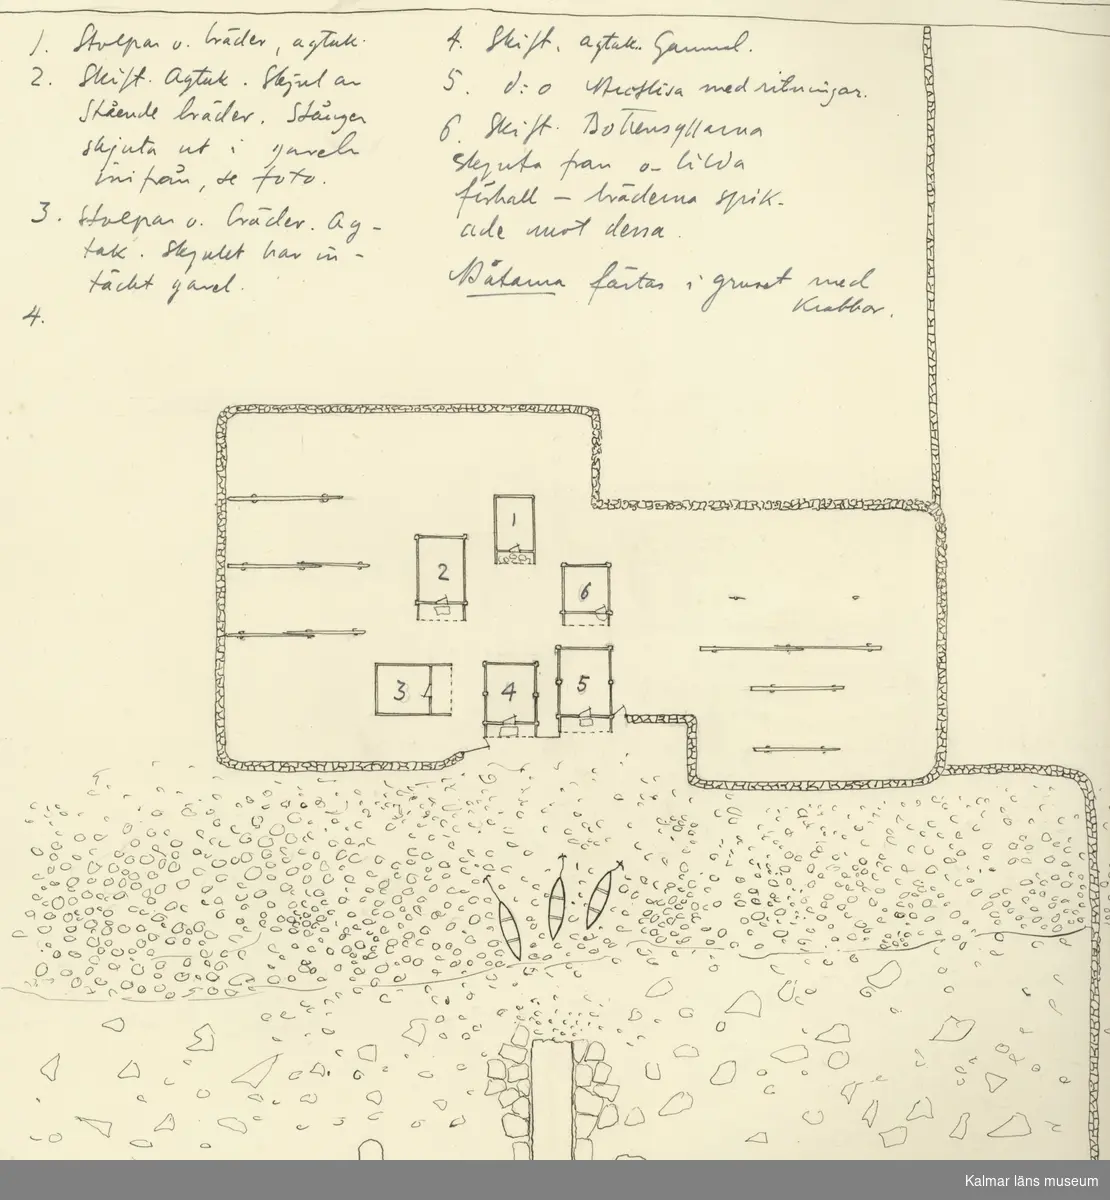 1. Stolpar o. bräder, agtak.
2. Skift. Agtak. Skjul av
stående bräder. Stänger
skjuta ut i gaveln
inifrån, se foto.
3. Stolpar o. bräder. Ag-
tak. Skjulet har in-
täckt gavel.
4.
4. Skift, agtak. Gammal.
5. d:o med ritningar.
6. Skift. Bottensyllarna
skjuta fram o
förhall – bräderna spik-
ade mot dessa.
Båtarna fästas i gruset med
krabbor.
1
2
6
3
4
5
Kalmar läns museum